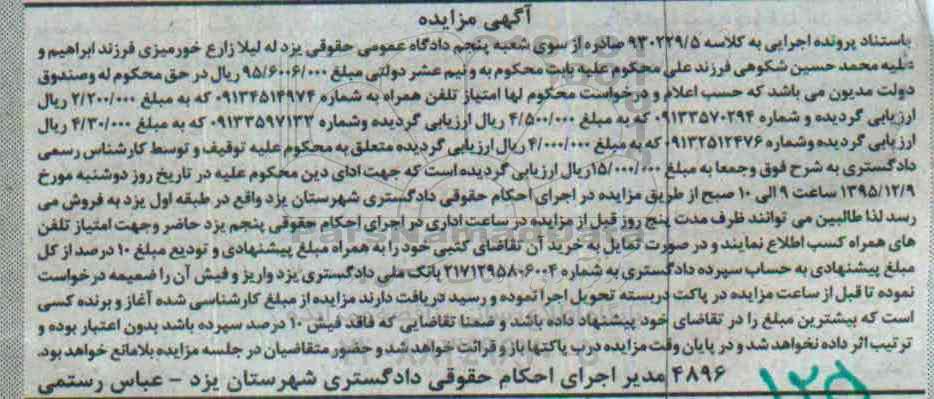 آگهی مزایده
باستناد پرونده اجرایی به کلاسه ۹۳۰۲۲۹/۵ صادره از سوی شعبه پنجم دادگاه عمومی حقوقی یزد له لیلا زارع خورمیزی فرزند ابراهیم و
علیه محمد حسین شکوهی فرزند علی محکوم علیه بابت محکوم به و نیم عشر دولتی مبلغ ۹۵/۶۰۰۶/۰۰۰ ریال در حق محکوم له وصندوق
دولت مدیون می باشد که حسب اعلام و درخواست محکوم لها امتیاز تلفن همراه به شماره ۰۹۱۳۴۵۱۴۹۷۴ که به مبلغ ۲/۲۰۰/۰۰۰ ریال
ارزیابی گردیده و شماره ۰۹۱۳۳۵۷۰۲۹۴ که به مبلغ ۴/۵۰۰/۰۰۰ ریال ارزیابی گردیده وشماره ۰۹۱۳۳۵۹۷۱۳۳ که به مبلغ ۴/۳۰/۰۰۰ ریال
ارزیابی گردیده وشماره ۰۹۱۳۲۵۱۲۴۷۶ که به مبلغ ۴/۰۰۰/۰۰۰ ریال ارزیابی گردیده متعلق به محکوم علیه توقیف و توسط کارشناس رسمی
دادگستری به شرح فوق وجمعا به مبلغ ۱۵/۰۰۰/۰۰۰ ریال ارزیابی گردیده است که جهت ادای دین محکوم علیه در تاریخ روز دوشنبه مورخ
۱۳۹۵/۱۲/۹ ساعت ۹ الی ۱۰ صبح از طریق مزایده در اجرای احکام حقوقی دادگستری شهرستان یزد واقع در طبقه اول یزد به فروش می
رسد لذا طالبین می توانند ظرف مدت پنج روز قبل از مزایده در ساعت اداری در اجرای احکام حقوقی پنجم یزد حاضر وجهت امتیاز تلفن
های همراه کسب اطلاع نمایند و در صورت تمایل به خرید آن تقاضای کتبی خود را به همراه مبلغ پیشنهادی و تودیع مبلغ ۱۰ درصد از کل
مبلغ پیشنهادی به حساب سپرده دادگستری به شماره ۲۱۷۱۲۹۵۸۰۶۰۰۴ بانک ملی دادگستری یزد واریز و فیش آن را ضمیمه درخواست
نموده تا قبل از ساعت مزایده در پاکت دربسته تحویل اجرا نموده و رسید دریافت دارند مزایده از مبلغ کارشناسی شده آغاز و برنده کسی
است که بیشترین مبلغ را در تقاضای خود پیشنهاد داده باشد و ضمنا تقاضایی که فاقد فیش ۱۰ درصد سپرده باشد بدون اعتبار بوده و
ترتیب اثر داده نخواهد شد و در پایان وقت مزایده درب پاکتها باز و قرائت خواهد شد و حضور متقاضیان در جلسه مزایده بلامانع خواهد بود.
۴۸۹۶ مدیر اجرای احکام حقوقی دادگستری شهرستان یزد - عباس رستمی